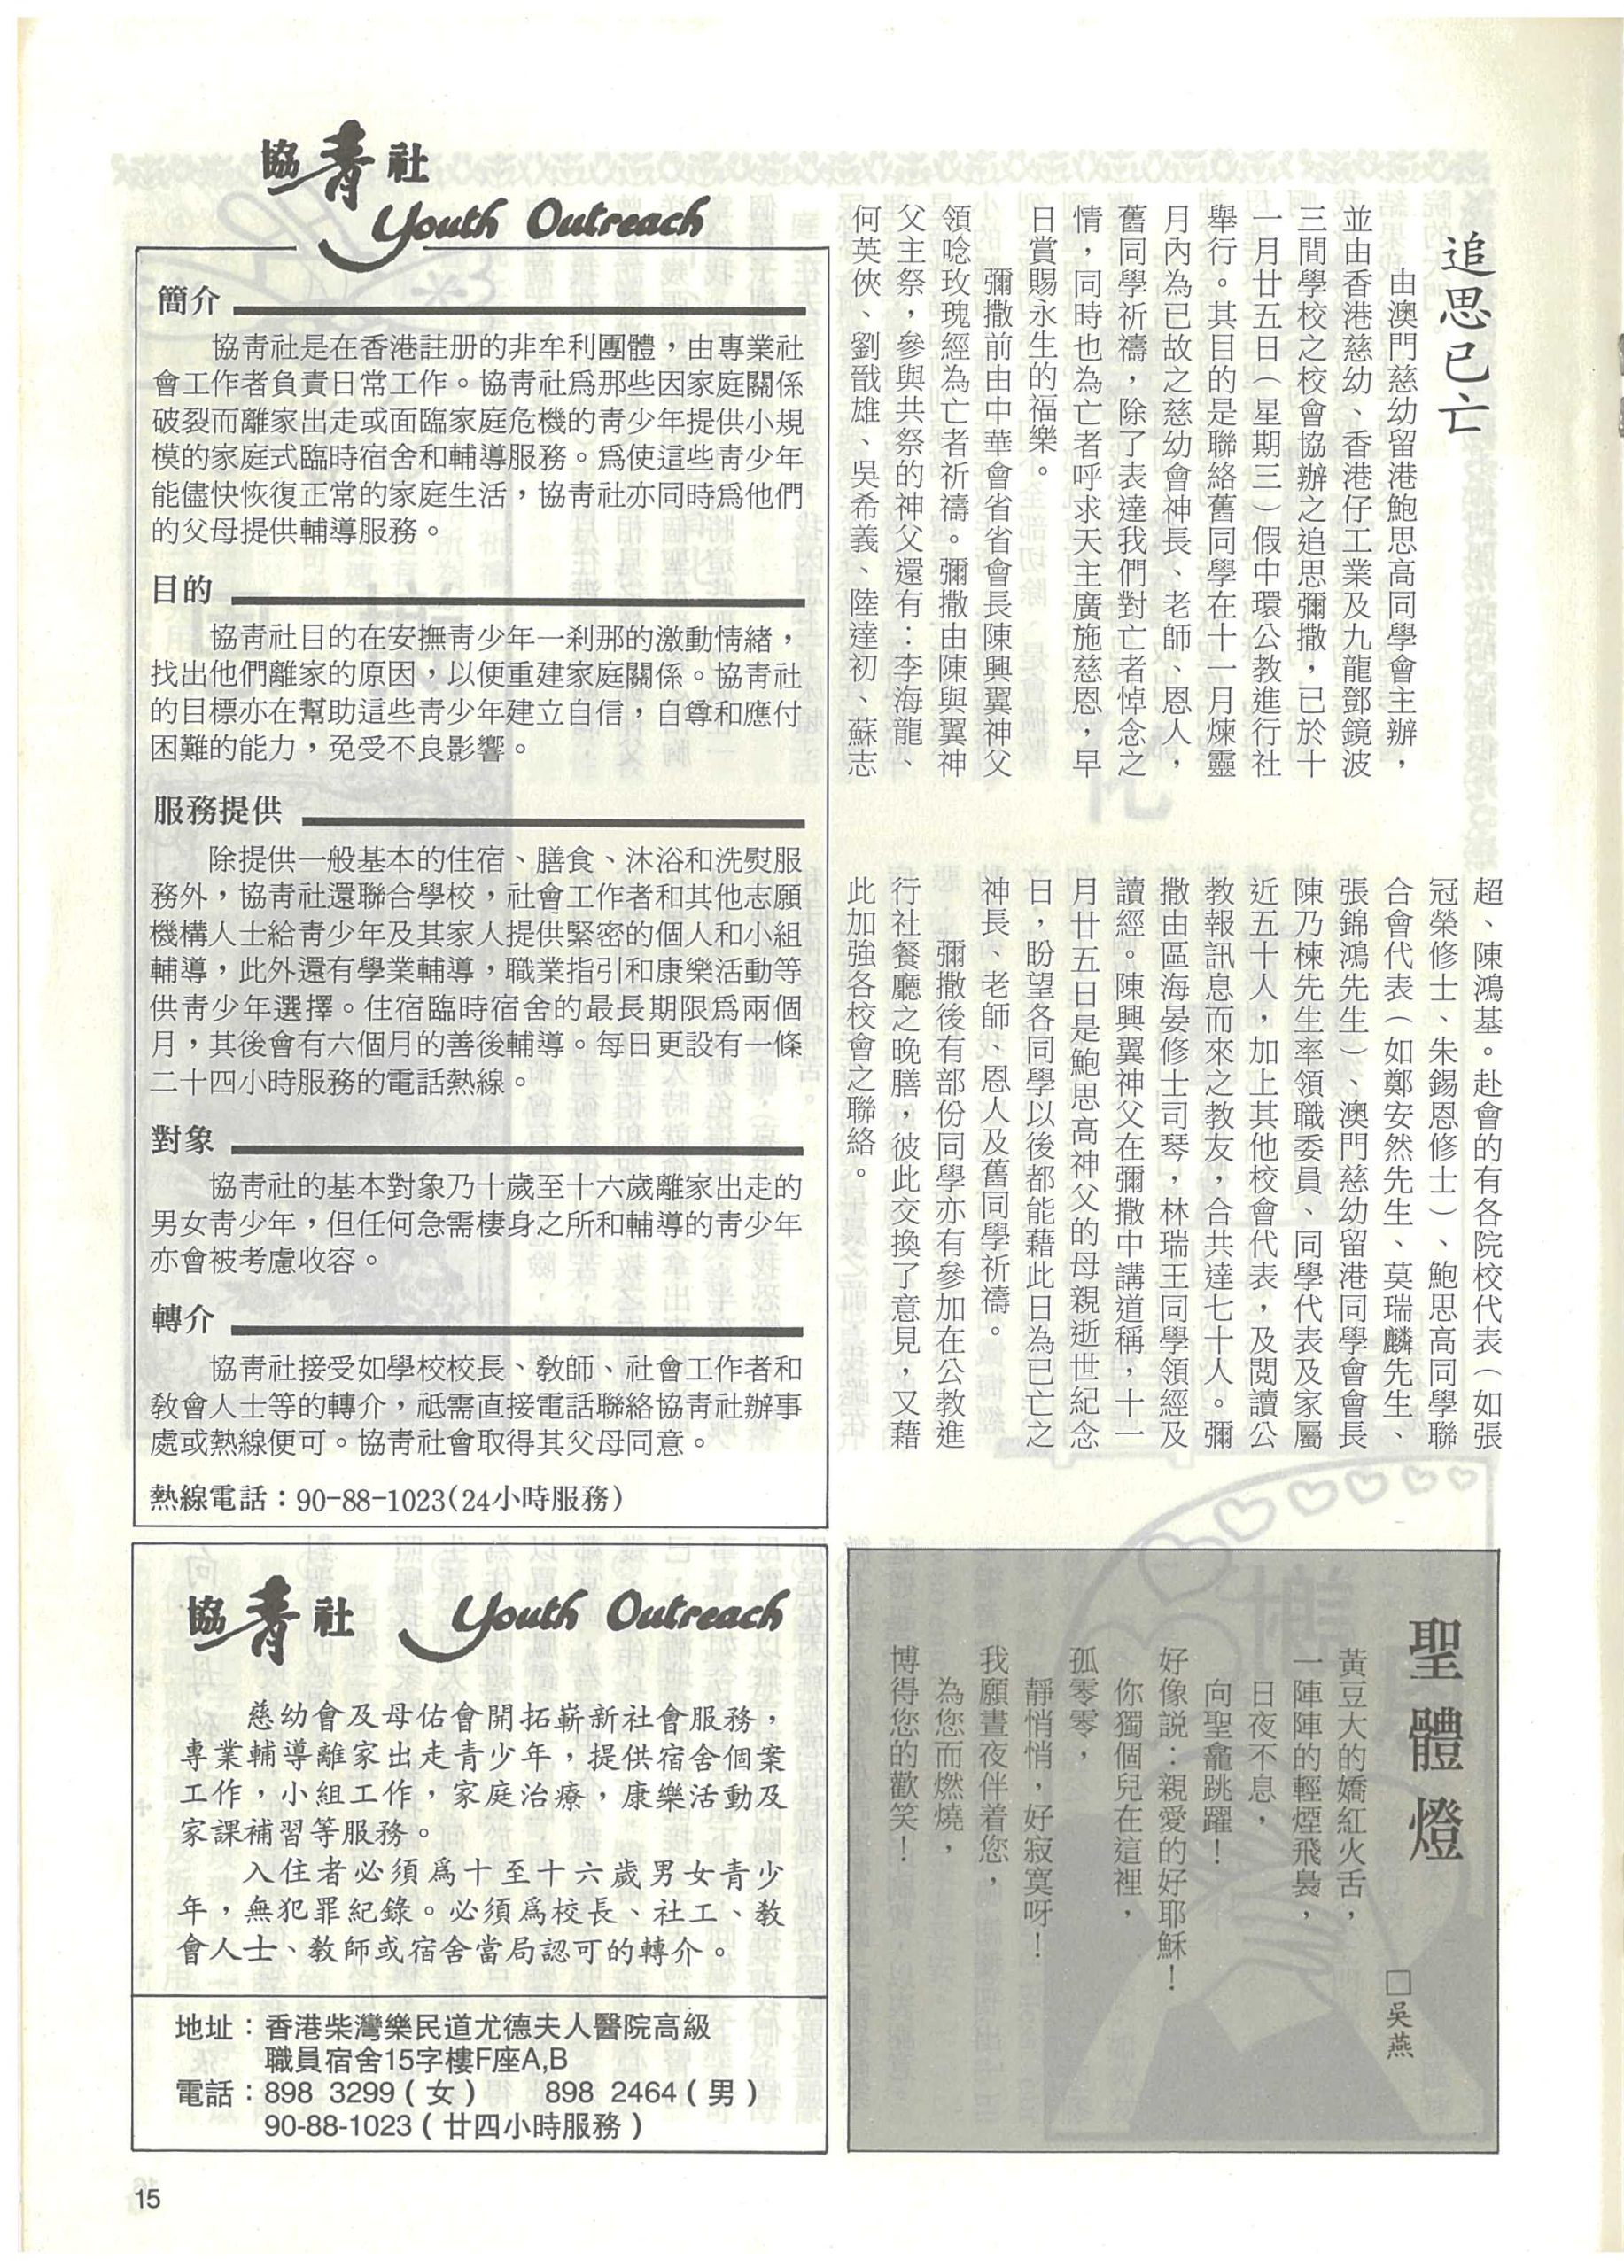 追思已亡
由澳門慈幼留港鮑思高同學會主辦，
並由香港慈幼、香港仔工業及九龍鄧鏡波
三間學校之校會協辦之追思彌撒，已於十
一月廿五日（星期三）假中環公教進行社
舉行。其目的是聯絡舊同學在十一月煉靈
月內為已故之慈幼會神長、老師、恩人，
舊同學祈禱，除了表達我們對亡者悼念之
情，同時也為亡者呼求天主廣施慈恩，早
日賞賜永生的福樂。
彌撒前由中華會省省會長陳興翼神父
領唸玫瑰經為亡者祈禱。彌撒由陳與翼神
父主祭，參與共祭的神父還有：李海龍、
何英俠、劉戩雄、吳希義、陸達初、蘇志
超、陳鴻基。赴會的有各院校代表（如張
冠榮修士、朱錫恩修士）、鮑思高同學聯
合會代表（如鄭安然先生、莫瑞麟先生、
張錦鴻先生）、澳門慈幼留港同學會會長
陳乃棟先生率領職委員、同學代表及家屬
近五十人，加上其他校會代表，及閱讀公
教報訊息而來之教友，合共達七十人。彌
撒由區海晏修士司琴，林瑞王同學領經及
讀經。陳興翼神父在彌撒中講道稱，十一
月廿五日是鮑思高神父的母親逝世紀念
日，盼望各同學以後都能藉此日為已亡之
神長、老師、恩人及舊同學祈禱。
彌撒後有部份同學亦有參加在公教進
行社餐廳之晚膳，彼此交換了意見，又藉
此加強各校會之聯絡。
協青社
Youth Outreach
簡介
協青社是在香港註册的非牟利團體，由專業社
會工作者負責日常工作。協青社爲那些因家庭關係
破裂而離家出走或面臨家庭危機的青少年提供小規
模的家庭式臨時宿舍和輔導服務。爲使這些青少年
能儘快恢復正常的家庭生活，協青社亦同時爲他們
的父母提供輔導服務。
目的
協青社目的在安撫青少年一刹那的激動情緒，
找出他們離家的原因，以便重建家庭關係。協青社
的目標亦在幫助這些青少年建立自信，自尊和應付
困難的能力，免受不良影響。
服務提供
除提供一般基本的住宿、膳食、沐浴和洗熨服
務外，協青社還聯合學校，社會工作者和其他志願
機構人士給青少年及其家人提供緊密的個人和小組
輔導，此外還有學業輔導，職業指引和康樂活動等
供青少年選擇。住宿臨時宿舍的最長期限爲兩個
月，其後會有六個月的善後輔導。每日更設有一條
二十四小時服務的電話熱線。
對象
協青社的基本對象乃十歲至十六歲離家出走的
男女青少年，但任何急需棲身之所和輔導的青少年
亦會被考慮收容。
轉介
協青社接受如學校校長、教師、社會工作者和
教會人士等的轉介，祇需直接電話聯絡協青社辦事
處或熱線便可。協青社會取得其父母同意。
熱線電話：90-88-1023(24小時服務)
協青社 Youth Outreach
慈幼會及母佑會開拓嶄新社會服務，
專業輔導離家出走青少年，提供宿舍個案
工作，小組工作，家庭治療，康樂活動及
家課補習等服務。
入住者必須爲十至十六歲男女青少
年，無犯罪紀錄。必須爲校長、社工、教
會人士、教師或宿舍當局認可的轉介。
地址：香港柴灣樂民道尤德夫人醫院高級
職員宿舍15字樓F座A,B
電話：898 3299（女） 898 2464（男）
90-88-1023（廿四小時服務）
聖體燈
□吳燕
黃豆大的嬌紅火舌，
一陣陣的輕煙飛裊，
日夜不息，
向聖龕跳躍！
好像説：親愛的好耶穌！
你獨個兒在這裡，
孤零零，
靜悄悄，好寂寞呀！
我願晝夜伴着您，
為您而燃燒，
博得您的歡笑！
15